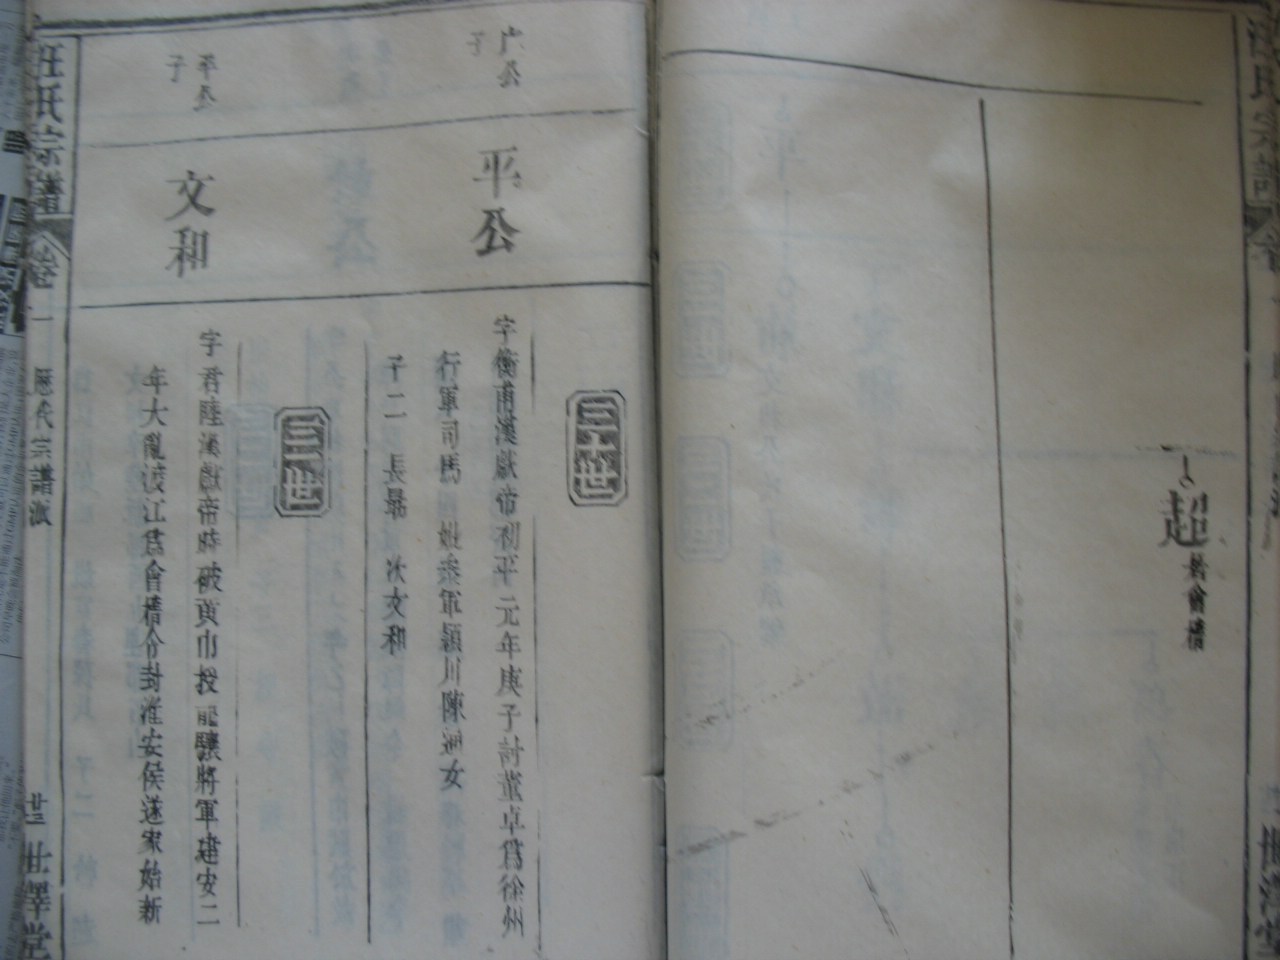 超
遷會稽
三十世
广公
子
平公
字衡甫漢獻帝初平元年庚子討董卓爲徐州
行軍司馬 娰叅軍頴川陳逈女
子二 長暠 次文和
三世
平公
子
文和
字君陸漢獻帝時破黃巾授龍驤將軍建安二
年大亂渡江爲會稽令封淮安侯遂家始新
汪氏宗譜
卷一
歷代宗譜派
世澤堂